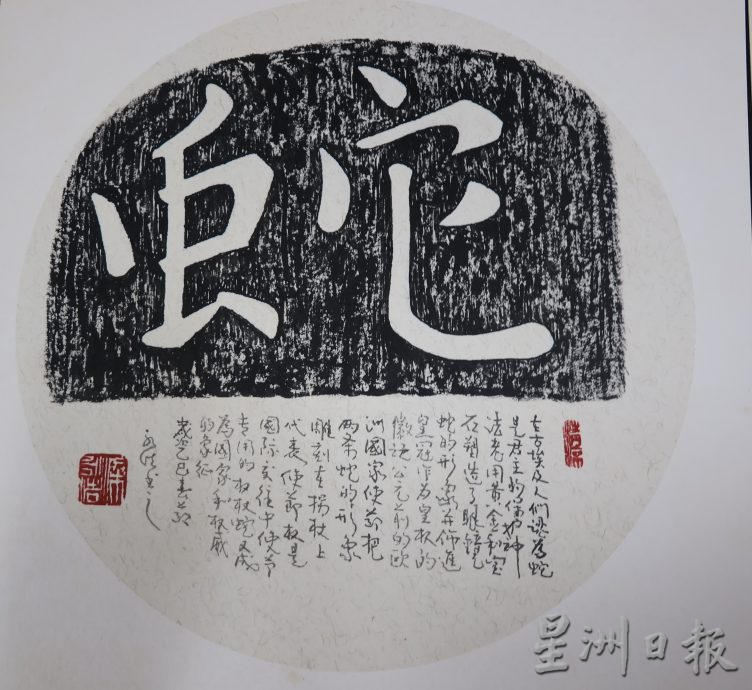 蛇
在古埃及人们認為蛇
是君王的保护神
法老用黄金和宝
石塑造了眼鏡
蛇的形象并飾進
皇冠作为皇权的
徽记公元前的欧
洲國家使节把
两条蛇的形象
雕刻在拐杖上
代表使节权是
國际交往中使节
专用的权杖蛇又成
為國家和权威
的象征
歲乙巳春节
書之
星洲日報